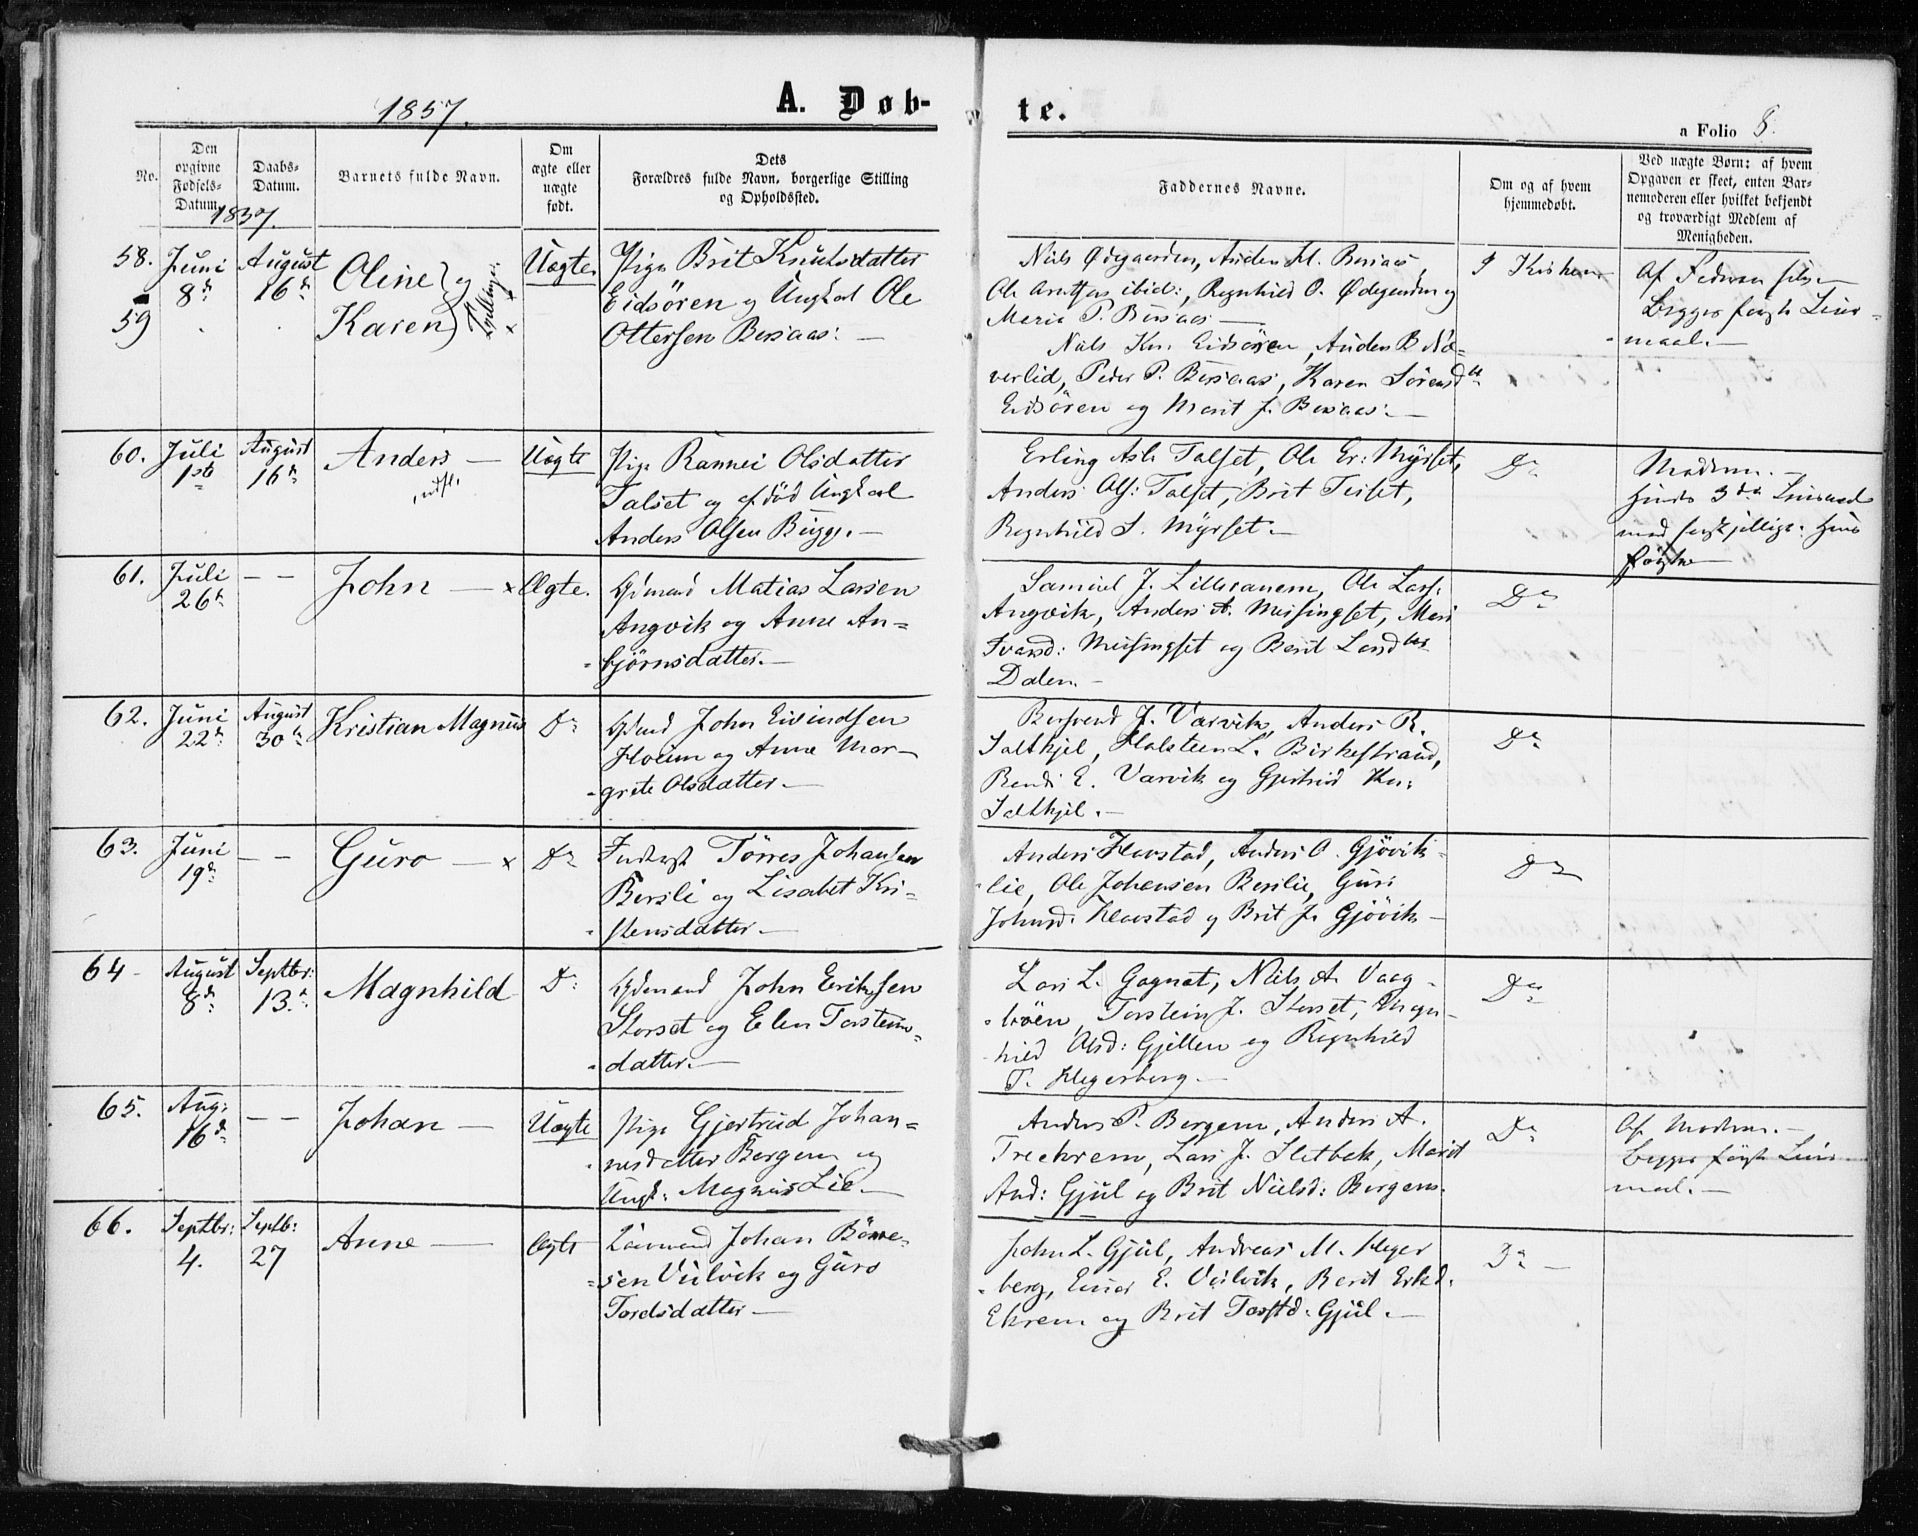 1857.
A. Døb-
te.
a Folio 8.
No.
Den
opgivne
Fødsels-
Datum.
Daabs-
Datum.
Barnets fulde Navn.
Om
ægte eller
uægte
født.
Dets
Forældres fulde Navn, borgerlige Stilling
og Opholdssted.
Faddernes Navne.
Om og af hvem
hjemmedøbt.
Ved uægte Børn: af hvem
Opgaven er skeet, enten Bar-
nemoderen eller hvilket bekjendt
og troværdigt Medlem af
Menigheden.
1857.
58.
59
Juni
8de
August
16de
Oline } og
Karen
Tvillinger
Uægte.
Pige Brit Knutsdatter
Eidsören og Ungkarl Ole
Ottersen Bersaas: —
Niels Ødegaarden, Anders M. Bersaas,
Ole ibid:, Regnhild O. Ødegarden og
Marie P. Bersaas —
Niels Kn. Eidsören, Anders B Næ-
verlid, Peder P. Bersaas, Karen Sörensd
Eidsören og Marit J. Bersaas: —
I Kirken
Af
Begges förste Leier-
maal. —
60.
Juli
1ste
August
16de
Anders —
Uægte
Pige Rannei Olsdatter
Talset og afdød Ungkarl
Anders Olsen Bügge. —
Erling Asl. Talset, Ole Er: Myrset,
Anders Ols: Talset, Brit Teiset,
Regnhild S. Myrset. —
Do
Moderen. —
Hendes 3die Leiermaal
med forskjellige
61.
Juli
26de
— —
John — ×
Ægte.
Gdmand Matias Larsen
Angvik og Anne An-
björnsdatter. —
Samuel J. Lillevanem, Ole Lars:
Angvik, Anders A. Meisingset, Mari
Ivarsd: Meisingset og Berit
Dalen. —
Do
62.
Juni
22de
August
30te
Kristian Magnus
Do
Gdmd John Eivindsen
Hoëm og Anne Mar-
grete Olsdatter. —
Bersvend J. Varvik, Anders R.
Saltkjel, Halsteen L. Birkestrand,
E. Varvik og Gjertrud Kn:
Saltkjel. —
Do
63.
Juni
19de
— —
Guro — ×
Do
Inderst Törres Johansen
Bersli og Lisabet Kri-
stensdatter. —
Anders Havstad, Anders O. Gjövik-
lie, Ole Johansen Berslie, Guri
Johnsd. Havstad og Brit J. Gjövik —
Do
64
August
8de
Septbr:
13de
Magnhild
Do
Gdmand John Eriksen
Storset og Elen Torsteins-
datter. —
Lars L. Gagnat, Niels A. Vaag-
böen, Torstein J. Storset, Magn-
hild Olsd: Gjellen og Regnhild
T. Hegerberg. —
Do
65.
Aug:
16de
— —
Johan —
Uægte
Pige Gjertrud Johan-
nesdatter Bergem og
Ungk: Magnus Lie —
Anders P. Bergem, Anders A.
Treekrem, Lars J. Sletbak, Marit
And: Gjül og Brit Nielsd: Bergem.
Do
Af Moderen. —
begges förste Leier-
maal. —
66.
Septbr:
4.
Septb:
27
Anne —
Ægte
Johan
sen Vülvik og Guro
Tordsdatter —
John L. Gjül, Andreas M. Heger
berg, Einar E. Vülvik, Berit Erksd.
Ekrem og Brit Torstd. Gjül. —
Do —